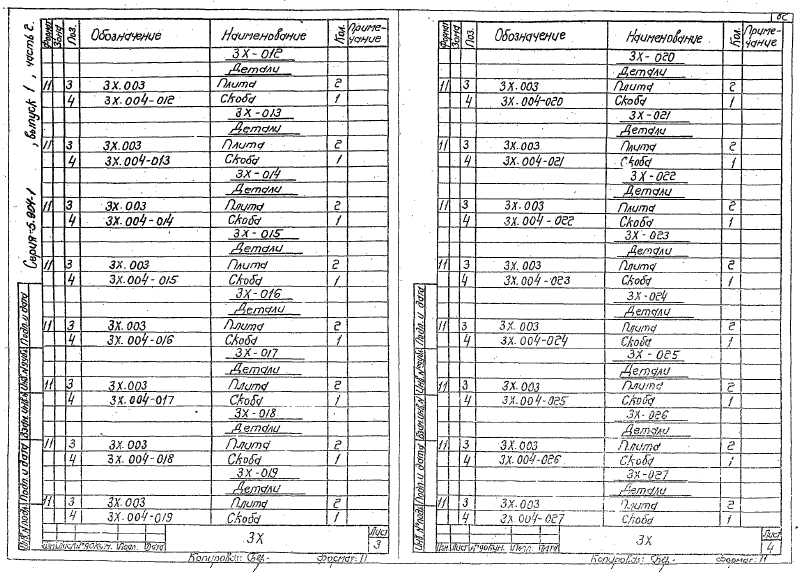 Серия 5.904-1, выпуск 1, часть 2.
Формат Зона Поз. Обозначение Наименование Кол. Примечание
3Х-012
Детали
11 3 3Х.003 Плита 2
4 3Х.004-012 Скоба 1
3Х-013
Детали
11 3 3Х.003 Плита 2
4 3Х.004-013 Скоба 1
3Х-014
Детали
11 3 3Х.003 Плита 2
4 3Х.004-014 Скоба 1
3Х-015
Детали
11 3 3Х.003 Плита 2
4 3Х.004-015 Скоба 1
3Х-016
Детали
11 3 3Х.003 Плита 2
4 3Х.004-016 Скоба 1
3Х-017
Детали
11 3 3Х.003 Плита 2
4 3Х.004-017 Скоба 1
3Х-018
Детали
11 3 3Х.003 Плита 2
4 3Х.004-018 Скоба 1
3Х-019
Детали
11 3 3Х.003 Плита 2
4 3Х.004-019 Скоба 1
Инв.№подл. Подп. и дата Взам.инв.№ Инв.№дубл. Подп. и дата
Изм Лист №докум. Подп. Дата
3Х
Лист
3
Копировал: Формат 11
Формат Зона Поз. Обозначение Наименование Кол. Примечание
3Х-020
Детали
11 3 3Х.003 Плита 2
4 3Х.004-020 Скоба 1
3Х-021
Детали
11 3 3Х.003 Плита 2
4 3Х.004-021 Скоба 1
3Х-022
Детали
11 3 3Х.003 Плита 2
4 3Х.004-022 Скоба 1
3Х-023
Детали
11 3 3Х.003 Плита 2
4 3Х.004-023 Скоба 1
3Х-024
Детали
11 3 3Х.003 Плита 2
4 3Х.004-024 Скоба 1
3Х-025
Детали
11 3 3Х.003 Плита 2
4 3Х.004-025 Скоба 1
3Х-026
Детали
11 3 3Х.003 Плита 2
4 3Х.004-026 Скоба 1
3Х-027
Детали
11 3 3Х.003 Плита 2
4 3Х.004-027 Скоба 1
Инв.№подл. Подп. и дата Взам.инв.№ Инв.№дубл. Подп. и дата
Изм Лист №докум. Подп. Дата
3Х
Лист
4
Копировал: Формат: 11